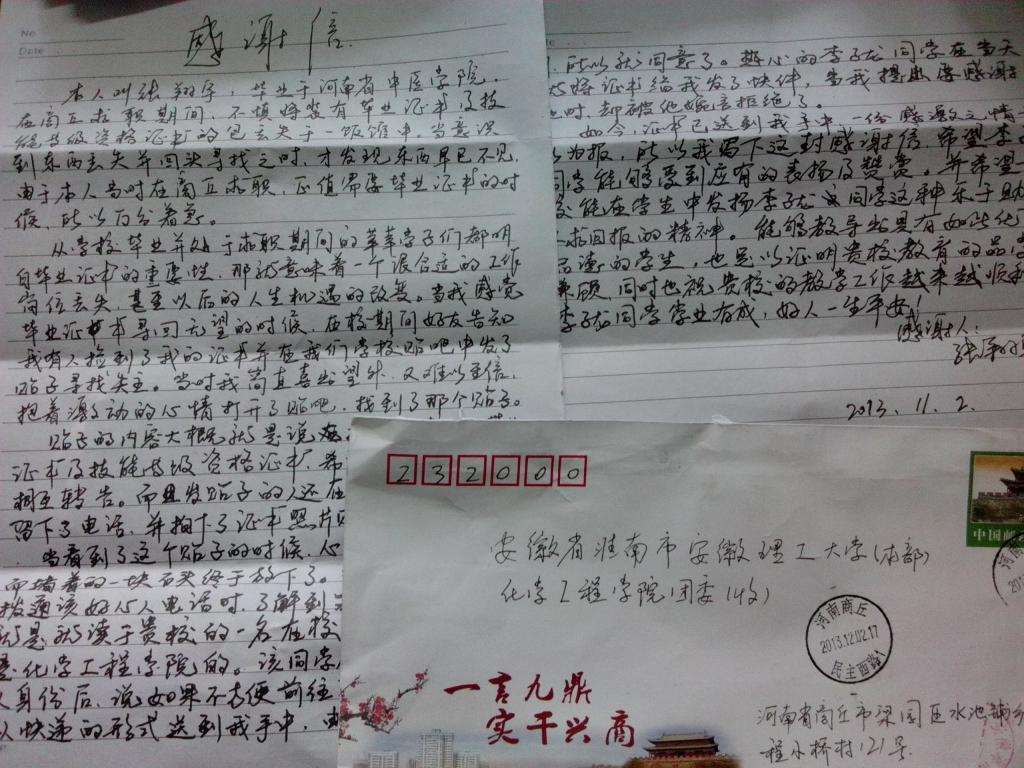 No
Date
感谢信
本人叫张翔宇，毕业于河南省中医学院，
在商丘求职期间，不慎将装有毕业证书及技
能等级资格证书的包丢失于一饭馆中，当意识
到东西丢失并回头寻找之时，才发现东西早已不见，
由于本人当时在商丘求职，正值需要毕业证书的时
候，所以万分着急。
从学校毕业并处于求职期间的莘莘学子们都明
白毕业证书的重要性，那就意味着一个很合适的工作
岗位丢失，甚至以后的人生机遇的改变。当我感觉
毕业证书寻回无望的时候，在校期间好友告知
我有人捡到了我的证书并在我们学校贴吧中发了
贴子寻找失主。当时我简直喜出望外，又难以置信，
抱着激动的心情打开了贴吧，找到了那个贴子。
贴子的内容大概就是说
证书及技能等级资格证书，希
相互转告。而且发贴子的人还在
留下了电话，并拍下了证书照片
当看到了这个贴子的时候，心
而堵着的一块石头终于放下了。
拨通该好心人电话时，了解到
就是就读于贵校的一名在校
是化学工程学院的。该同学
人身份后，说如果不方便前往
以快递的形式送到我手中，由
，所以就同意了。热心的李子龙同学在当天
将证书给我发了快件，当我提出要感谢
时，却被他婉言拒绝了。
如今，证书已送到我手中，一份感激之情
以为报，所以我写下这封感谢信，希望李
同学能够受到应有的表扬及赞赏。并希望
能在学生中发扬李子龙同学这种乐于助
求回报的精神。能够教导出具有如此
品德的学生，也足以证明贵校教育的品
兼顾，同时也祝贵校的教学工作越来越顺利
李子龙同学学业有成，好人一生平安！
感谢人：
张翔宇
2013.11.2.
232000
安徽省淮南市安徽理工大学（本部）
化学工程学院团委（收）
中国邮
河南商丘
2013.12.02.17
民主西路
一言九鼎
实干兴商
河南省商丘市梁园区水池铺乡
程小桥村121号